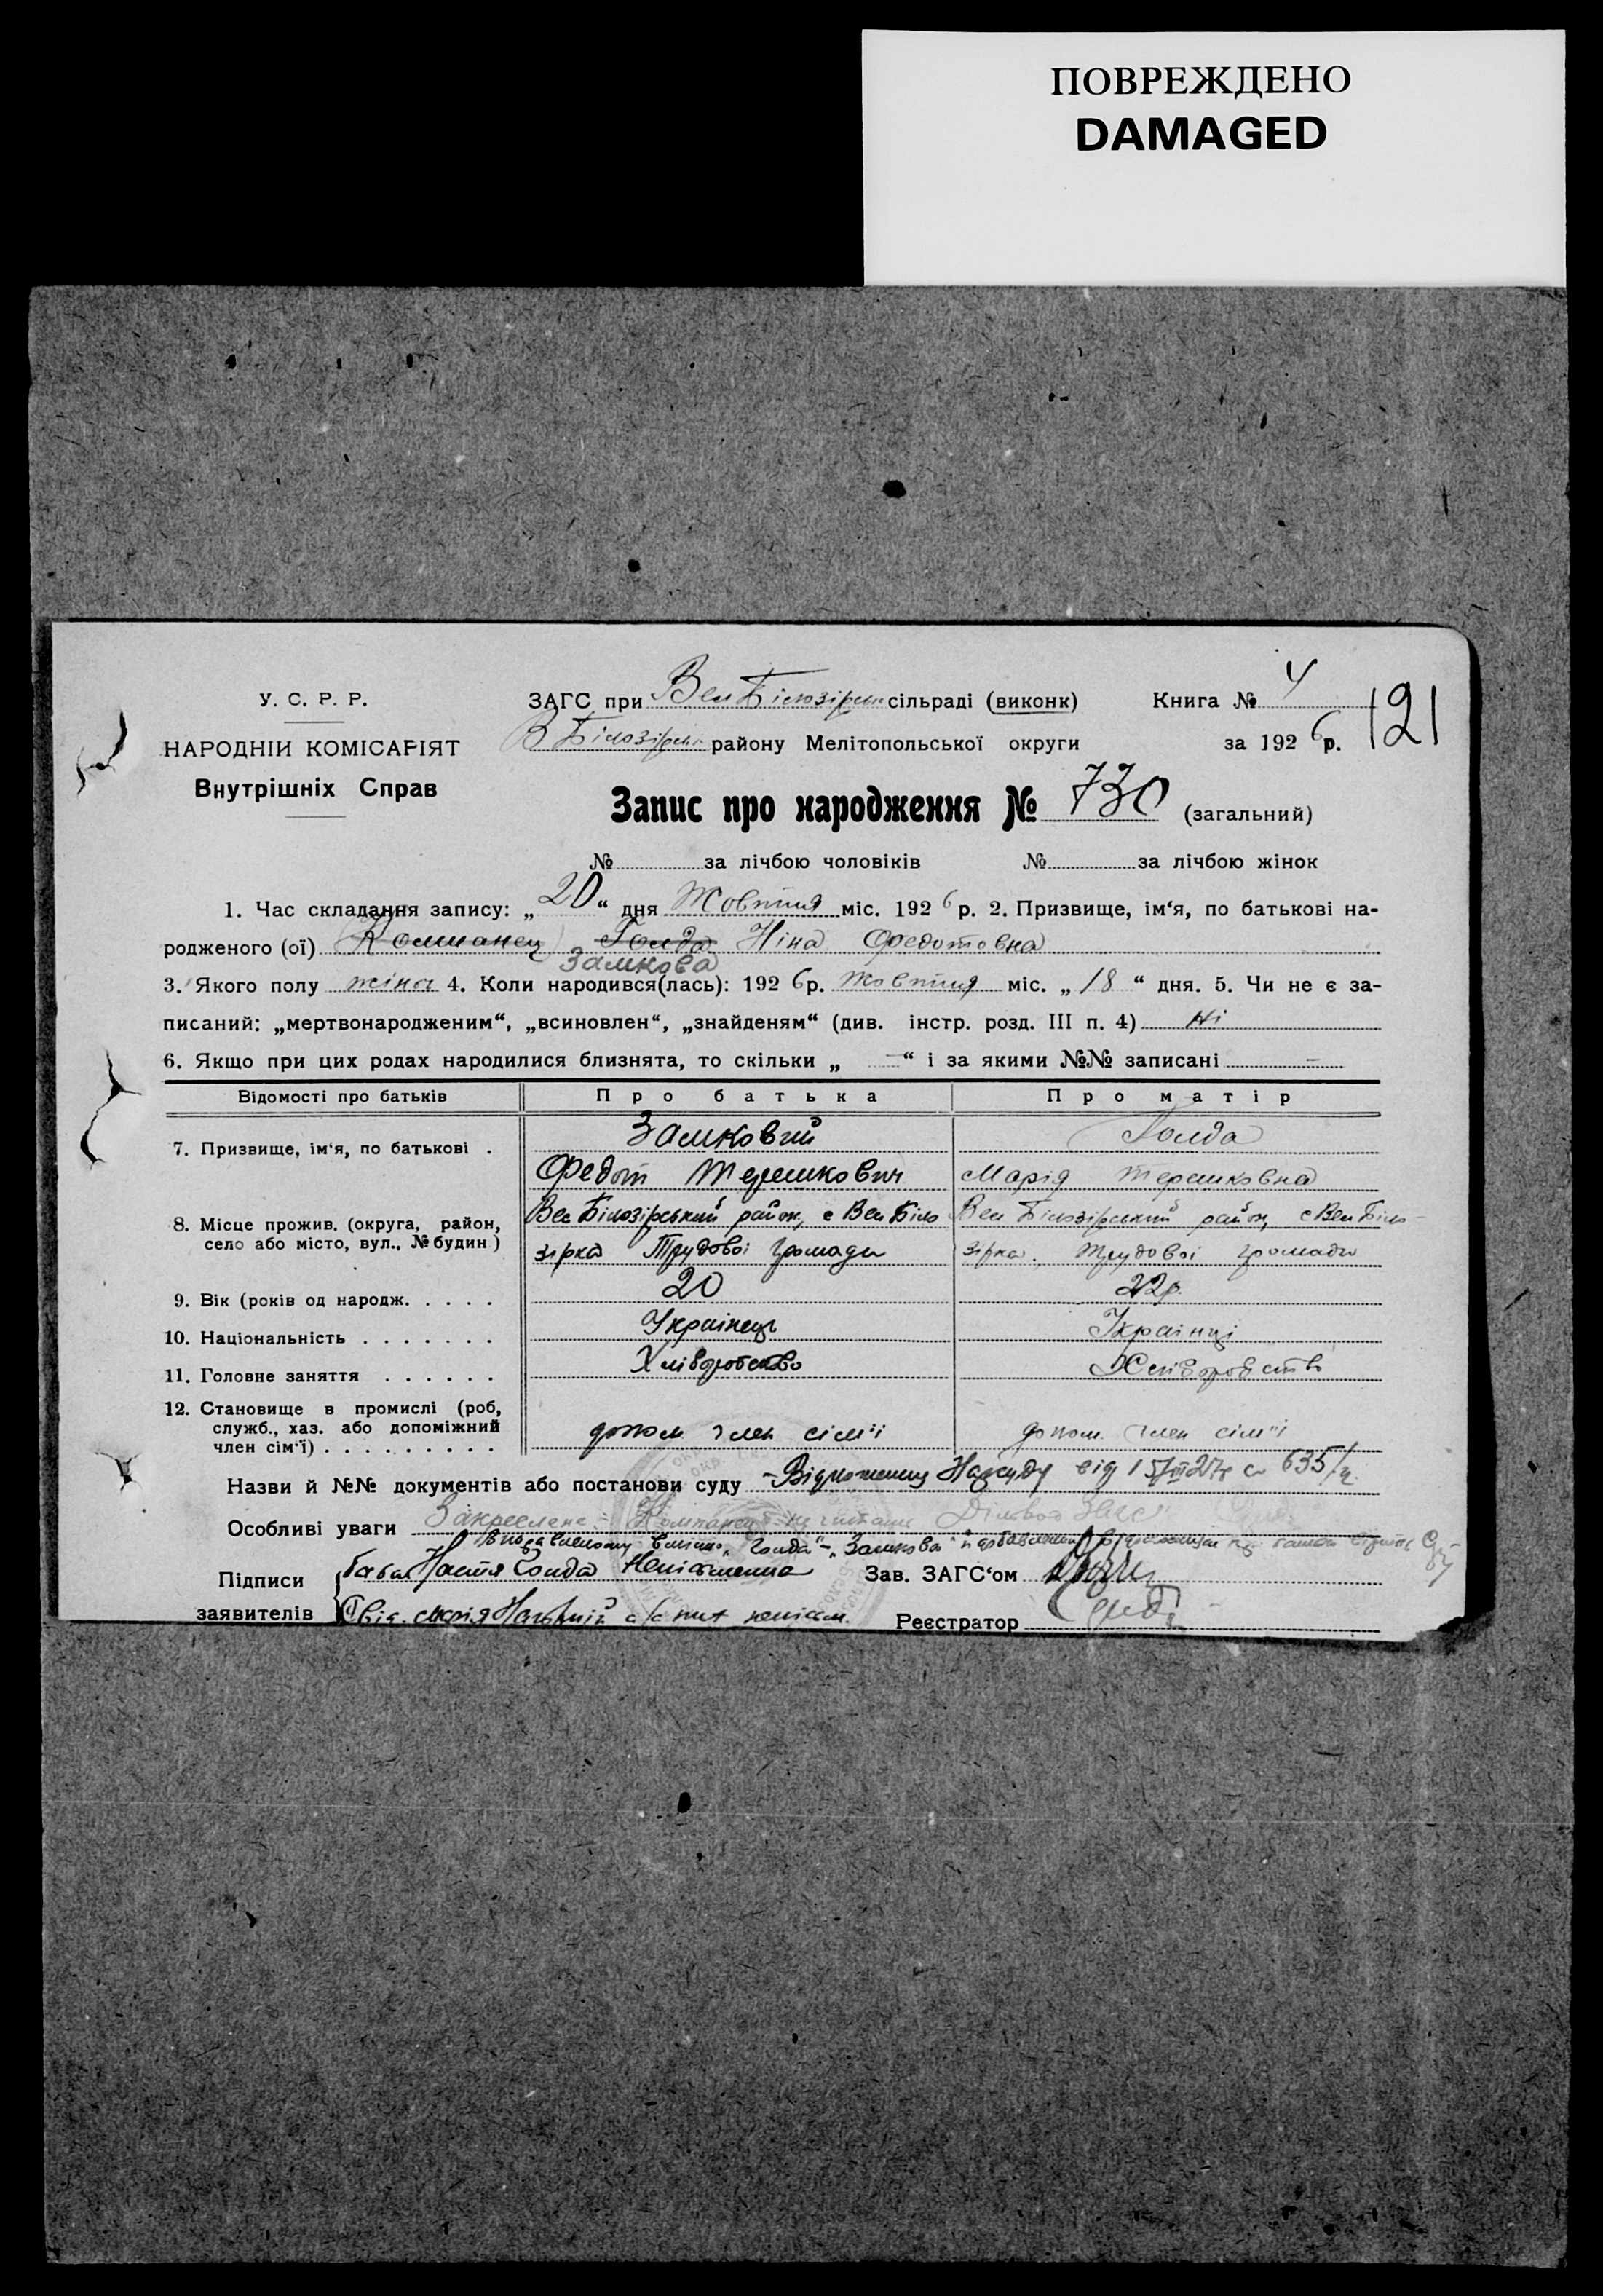 ПОВРЕЖДЕНО
DAMAGED
У. С. Р. Р.
НАРОДНІЙ КОМІСАРІЯТ
Внутрішніх Справ
ЗАГС при Вел Білозірськ сільраді (виконк)
В Білозірськ району Мелітопольської округи
Книга № 4
за 1926 р.
121
Запис про народження № 730 (загальний)
№ за лічбою чоловіків № за лічбою жінок
1. Час складання запису: „20“ дня Жовтня міс. 1926 р. 2. Призвище, ім‘я, по батькові на-
родженого (ої) Голда Ніна Федотовна
Замкова
3. Якого полу жіноч 4. Коли народився(лась): 1926 р. Жовтня міс. „18“ дня. 5. Чи не є за-
писаний: „мертвонародженим“, „всиновлен“, „знайденям“ (див. інстр. розд. III п. 4) Ні
6. Якщо при цих родах народилися близнята, то скільки „ — “ і за якими №№ записані —
Відомості про батьків Про батька Про матір
7. Призвище, ім‘я, по батькові . Замковий Голда
Федот Терешкович Марія Терешковна
8. Місце прожив. (округа, район, село або місто, вул., № будин) Вел Білозірський район, с Вел Біло Вел Білозірський район, с Вел Біло-
зірка Трудової громади зірка, Трудової громади
9. Вік (років од народж. . . . . 20 22р.
10. Національність . . . . . . . Українець Українці
11. Головне заняття . . . . . . Хліборобство Хліборобство
12. Становище в промислі (роб,
служб., хаз. або допоміжний
член сім‘ї) . . . . . . . . . допом член сім'ї допом. член сім'ї
Назви й №№ документів або постанови суду Нарсуду від 635/
Особливі уваги Закреслене не читати
вмісто „Голда“ – „Замкова“
Підписи
заявителів
баба Настя Голда Неписьменна
Зав. ЗАГС‘ом
Марія
Реєстратор